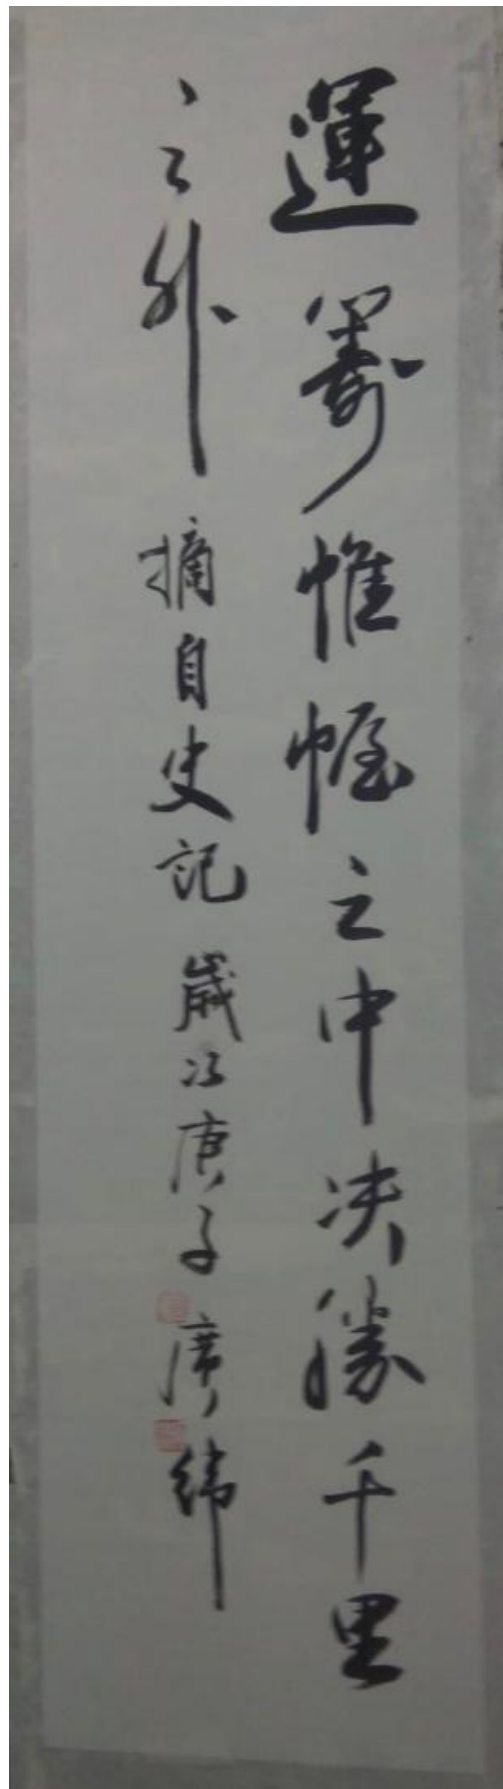 運籌帷幄之中决勝千里
之外 摘自史記 歲次庚子 席緯